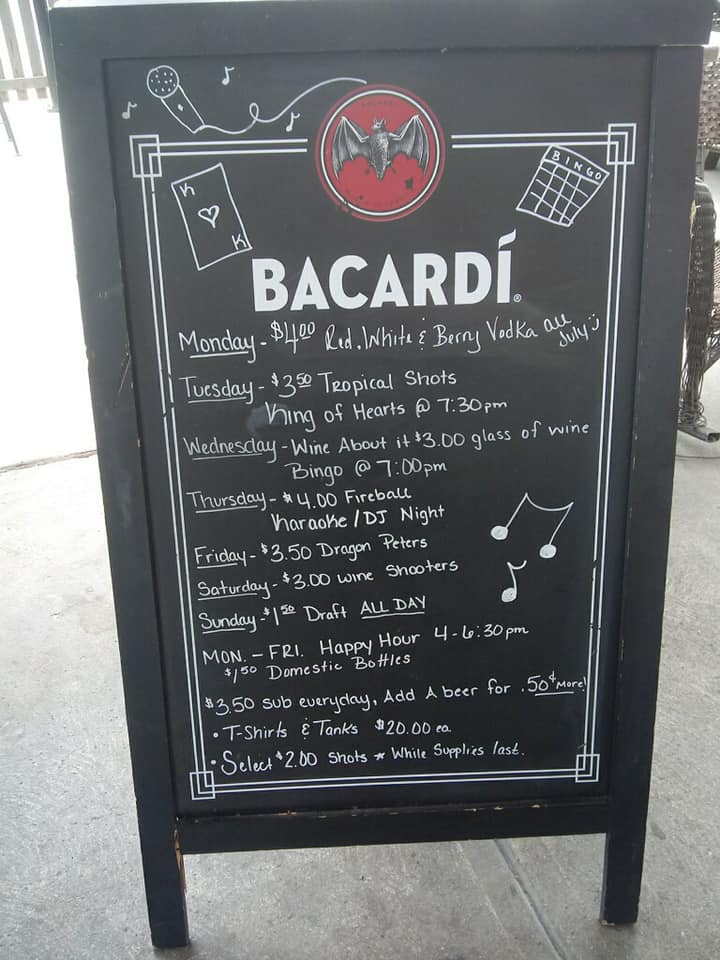 K
K
BINGO
BACARDÍ®
Monday - $4.00 Red, White & Berry Vodka all July
Tuesday - $3.50 Tropical Shots
King of Hearts @ 7:30pm
Wednesday - Wine About it $3.00 glass of wine
Bingo @ 7:00pm
Thursday - $4.00 Fireball
Karaoke / DJ Night
Friday - $3.50 Dragon Peters
Saturday - $3.00 wine Shooters
Sunday - $1.50 Draft ALL DAY
MON. - FRI. Happy Hour 4-6:30pm
$1.50 Domestic Bottles
$3.50 sub everyday, Add A beer for .50¢ More!
• T-Shirts & Tanks $20.00 ea.
• Select $2.00 Shots * While Supplies last.